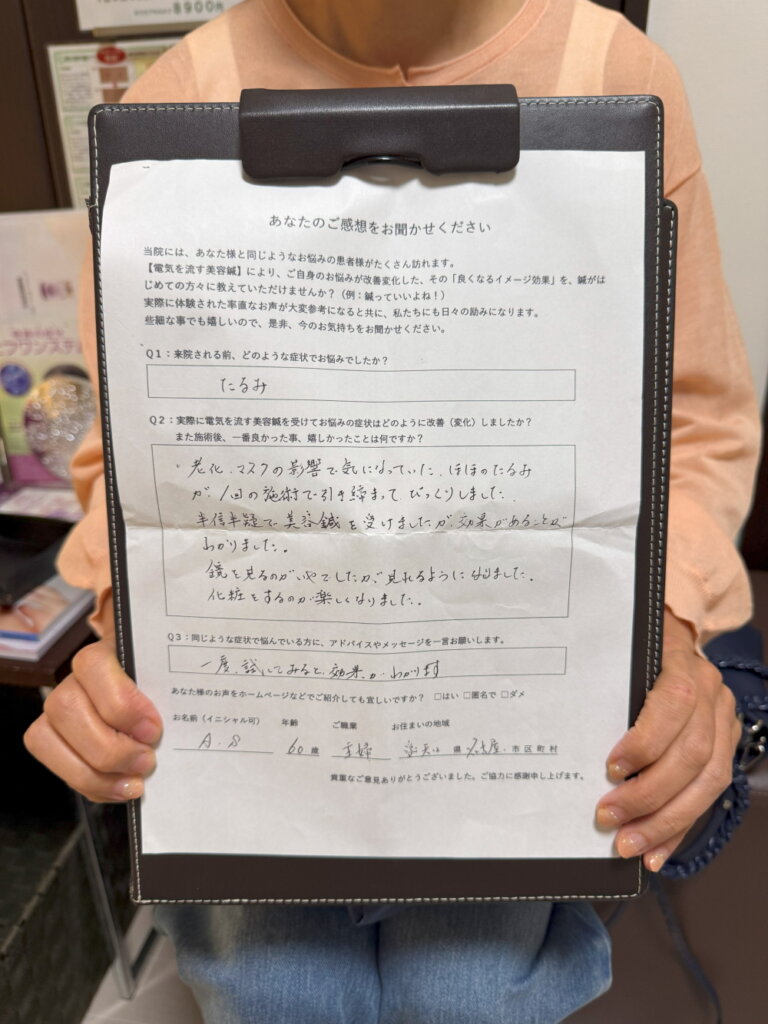 8900円
あなたのご感想をお聞かせください
当院には、あなた様と同じようなお悩みの患者様がたくさん訪れます。
【電気を流す美容鍼】により、ご自身のお悩みが改善変化した、その「良くなるイメージ効果」を、鍼がは
じめての方々に教えていただけませんか?(例:鍼っていいよね!)
実際に体験された率直なお声が大変参考になると共に、私たちにも日々の励みになります。
些細な事でも嬉しいので、是非、今のお気持ちをお聞かせください。
Q1:来院される前、どのような症状でお悩みでしたか?
たるみ
Q2:実際に電気を流す美容鍼を受けてお悩みの症状はどのように改善(変化)しましたか?
また施術後、一番良かった事、嬉しかったことは何ですか?
老化、マスクの影響で気になっていた、ほほのたるみ
が、1回の施術で引き締まって、びっくりしました。
半信半疑で美容鍼を受けましたが、効果があることが
わかりました。
鏡を見るのがいやでしたが、見れるようになりました。
化粧をするのが楽しくなりました。
Q3:同じような症状で悩んでいる方に、アドバイスやメッセージを一言お願いします。
一度、試してみると、効果がわかります
あなた様のお声をホームページなどでご紹介しても宜しいですか? □はい □匿名で □ダメ
お名前(イニシャル可) 年齢 ご職業 お住まいの地域
A.S 60歳 主婦 県 名古屋 市区町村
貴重なご意見ありがとうございました。ご協力に感謝申し上げます。